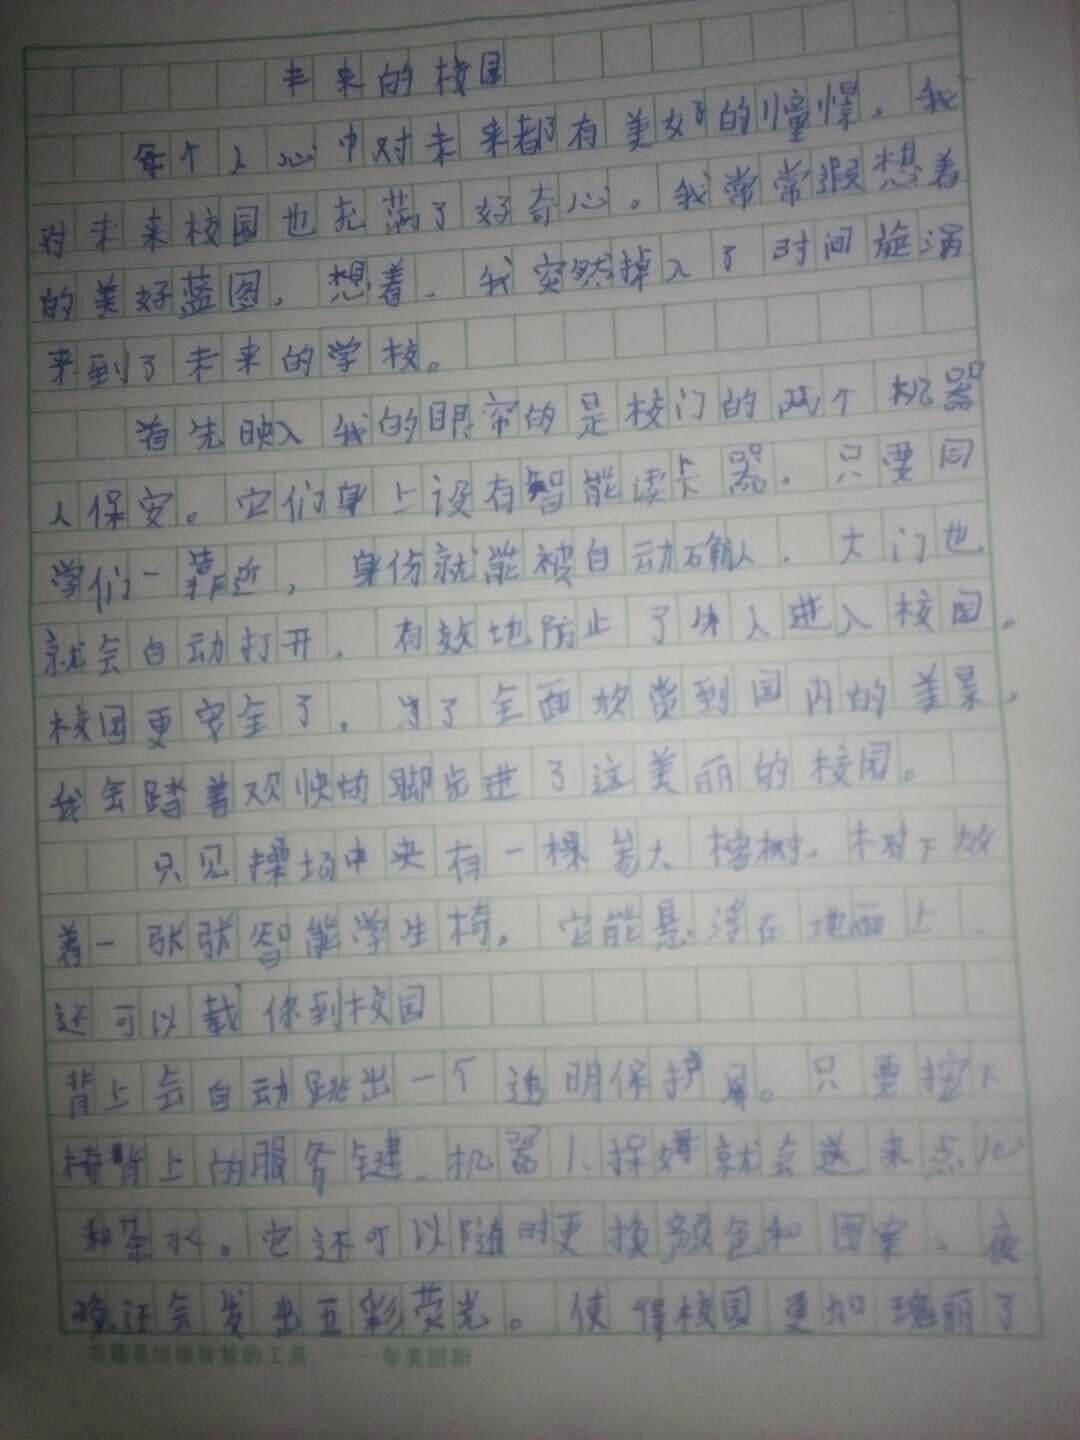 未来的校园
每个人心中对未来都有美好的憧憬，我
对未来校园也充满了好奇心。我常常遐想着
的美好蓝图，想着，我突然掉入了时间旋涡
来到了未来的学校。
首先映入我的眼帘的是校门的两个机器
人保安。它们身上设有智能读卡器，只要同
学们一靠近，身份就能被自动确认，大门也
就会自动打开，有效地防止了外人进入校园。
校园更安全了，为了全面欣赏到园内的美景，
我会踏着欢快的脚步进了这美丽的校园。
只见操场中央有一棵 大榕树，树下放
着一张张智能学生椅，它能悬浮在地面上，
还可以载你到校园
背上会自动跳出一个透明保护屏。只要按下
椅背上的服务键，机器人保姆就会送来点心
和茶水。它还可以随时更换颜色和图案、夜
晚还会发出五彩荧光。使得校园更加瑰丽了
书籍是 智慧的工具 ——夸美纽斯